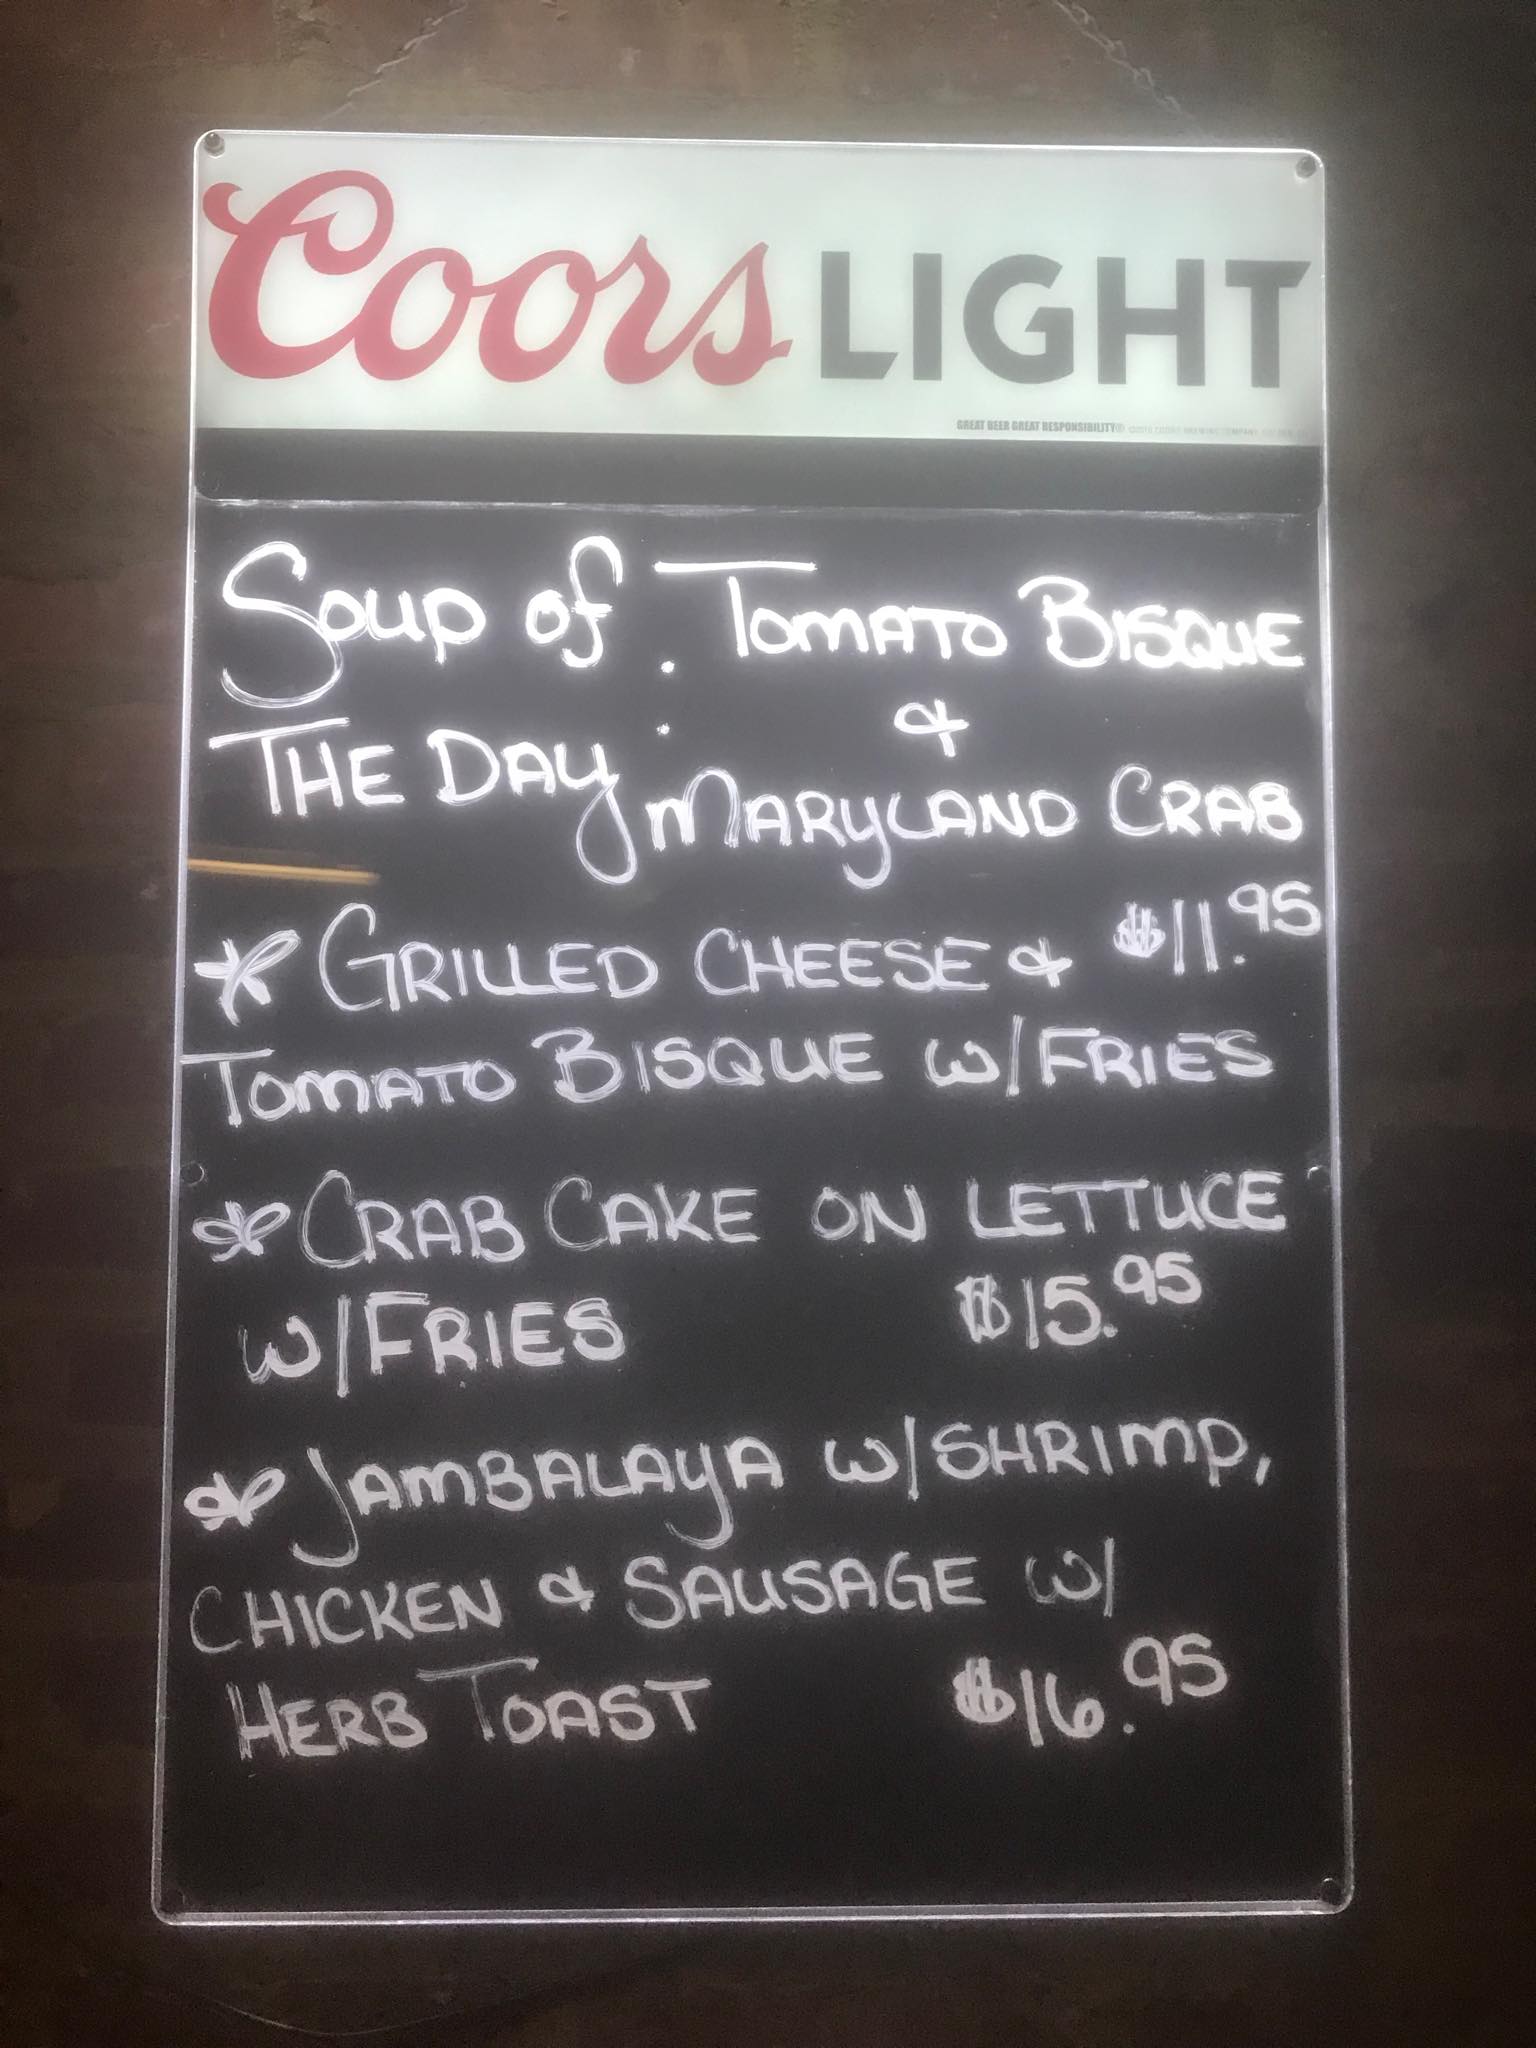 Coors LIGHT
GREAT BEER GREAT RESPONSIBILITY®
Soup of : Tomato Bisque
The Day &
Maryland Crab
Grilled Cheese & $11.95
Tomato Bisque w/Fries
Crab Cake on Lettuce
w/Fries $15.95
Jambalaya w/Shrimp,
Chicken & Sausage w/
Herb Toast $16.95